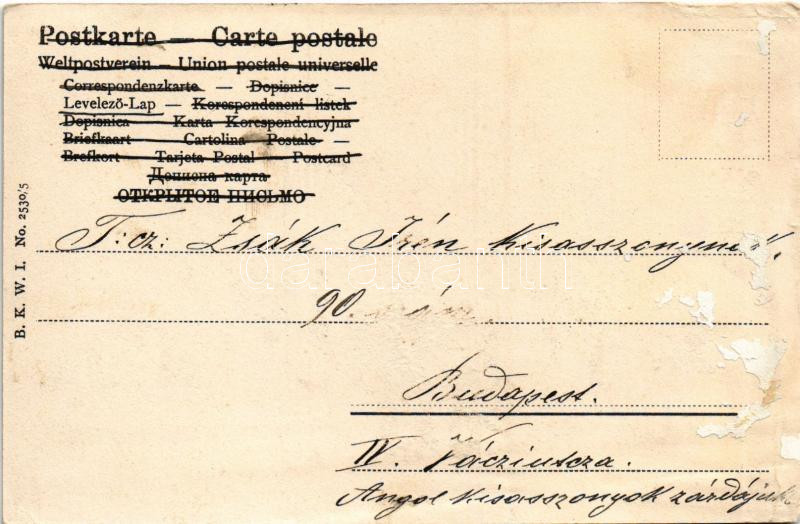 Postkarte — Carte postale
Weltpostverein — Union postale universelle
Correspondenzkarte — Dopisnice —
Levelező-Lap — Korespondenení listek
Dopisnica — Karta Korespondencyjna
Briefkaart — Cartolina Postale —
Brefkort — Tarjeta Postal — Postcard
Дописна карта
ОТКРЫТОЕ ПИСЬМО
B. K. W. I. No. 2530/5
T: cz: Zsák Irén kisasszonynak.
darabanth.com
90. szám.
Budapest.
IV. Vácziutcza.
Angol kisasszonyok zárdájuk